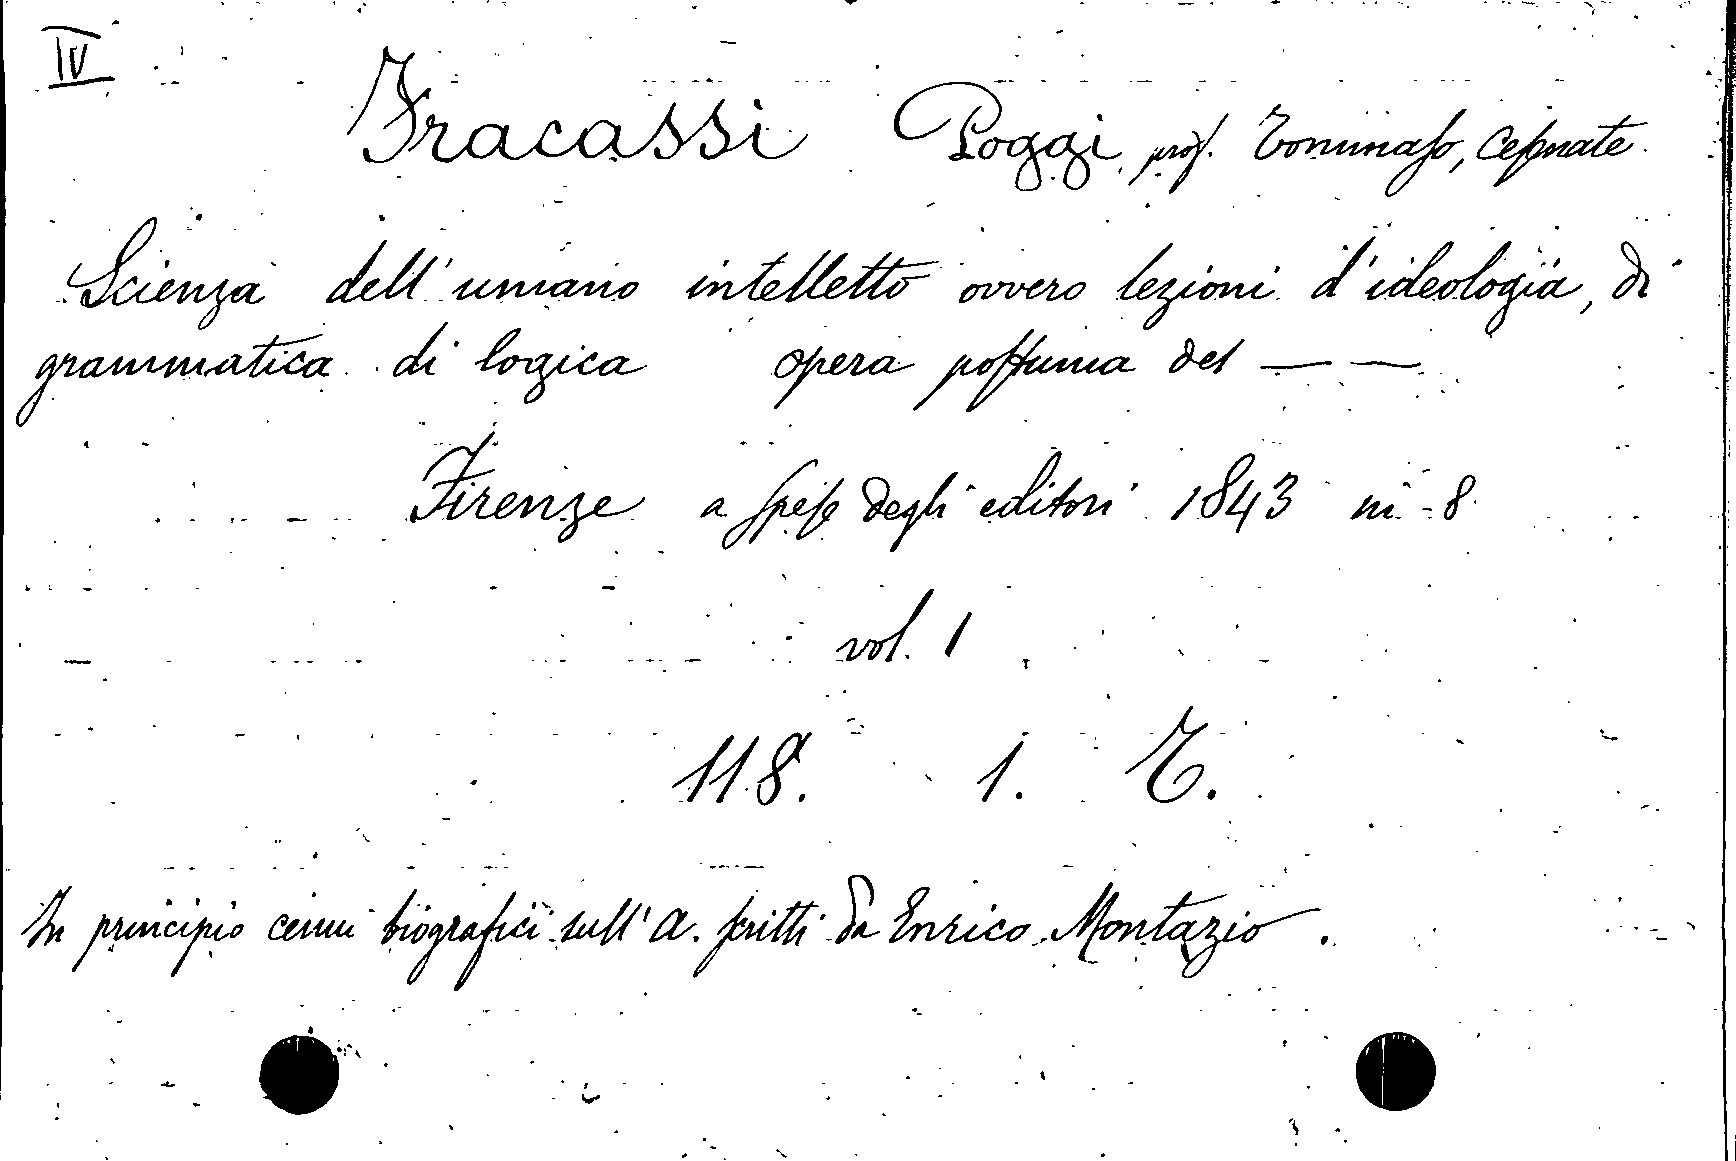 IV
Fracassi Poggi prof. Tommaso, Cesenate
Scienza dell'umano intelletto ovvero lezioni d'ideologia, di
grammatica di logica opera postuma del — —
Firenze a spese degli editori 1843 in-8
vol. 1
118. 1. T.
In principio cenni biografici sull'A. scritti da Enrico Montazio.